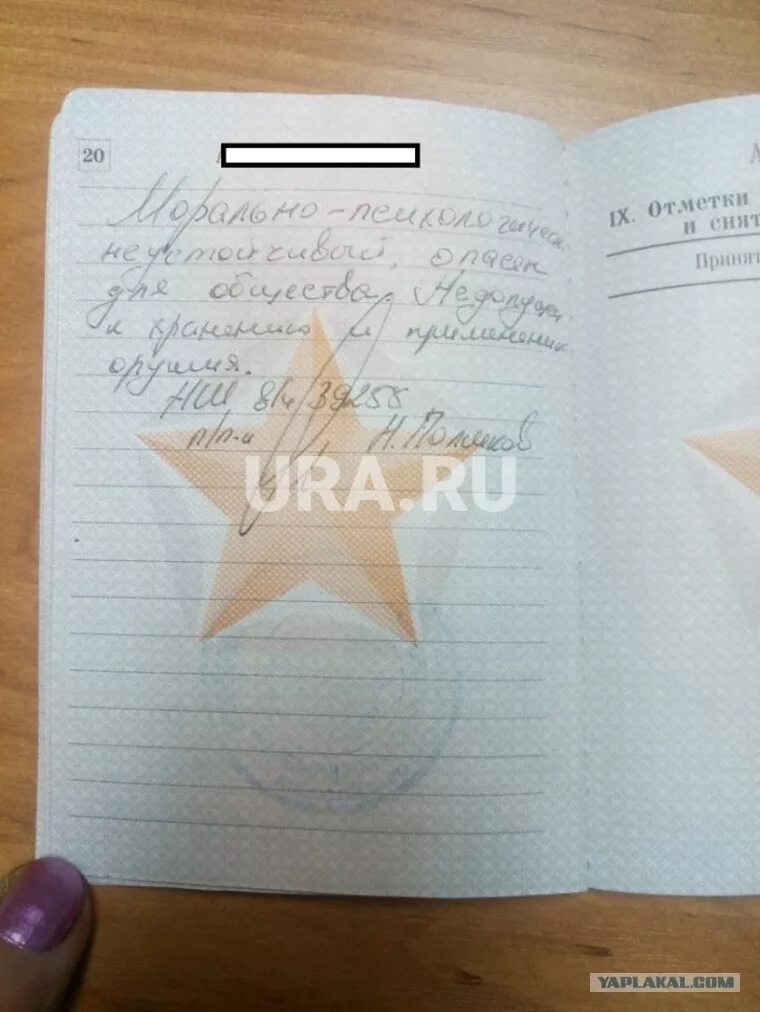 20
Морально-психологически
неустойчивый, опасен
для общества. Недопущен
к хранению и применению
оружия.
НШ в/ч 39255
п/п-к Н. Поляков
URA.RU
IX. Отметки
и снят
Принят
YAPLAKAL.COM